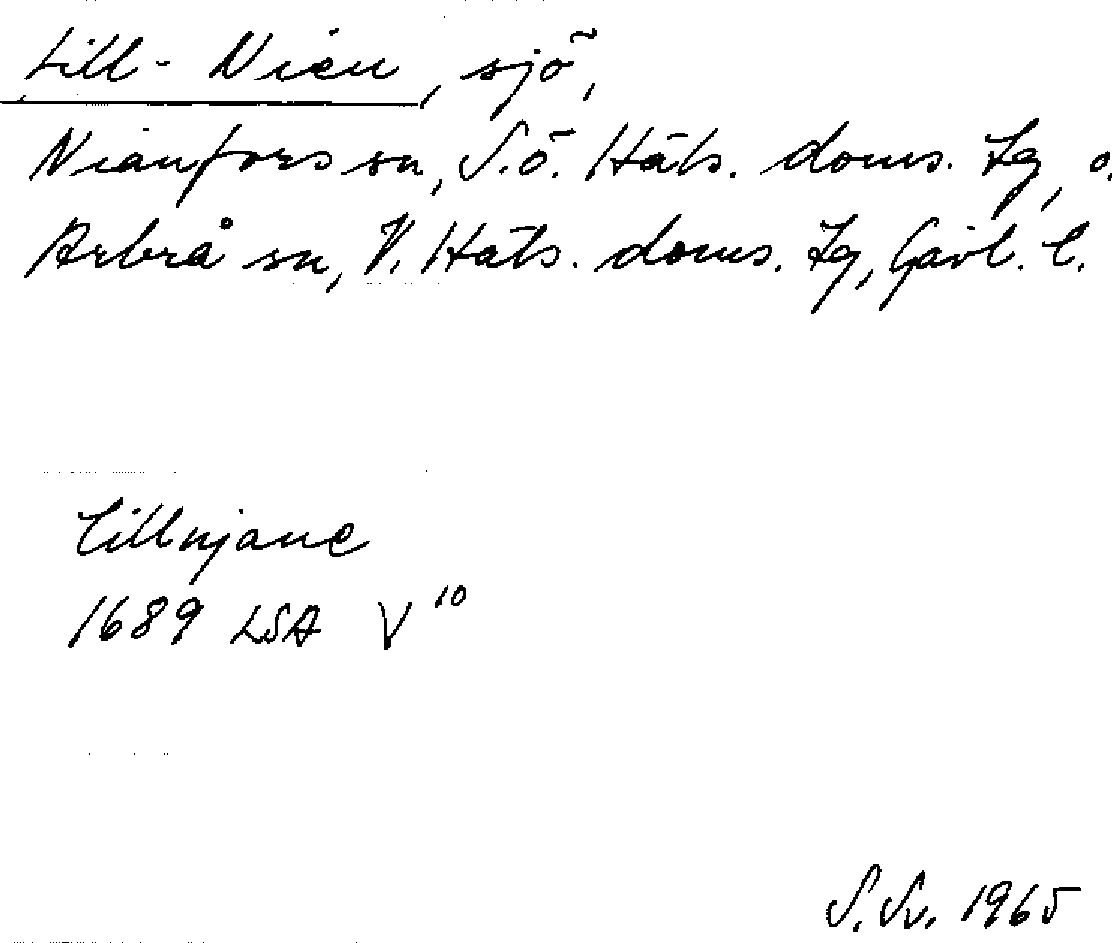 Lill-Nien, sjö,
Nianfors sn, S.ö. Häls. doms. Lg, o.
Arbrå sn, V. Häls. doms. Lg, Gävl. l.
Lillnjane
1689 LSA V 10
S. Sv. 1965